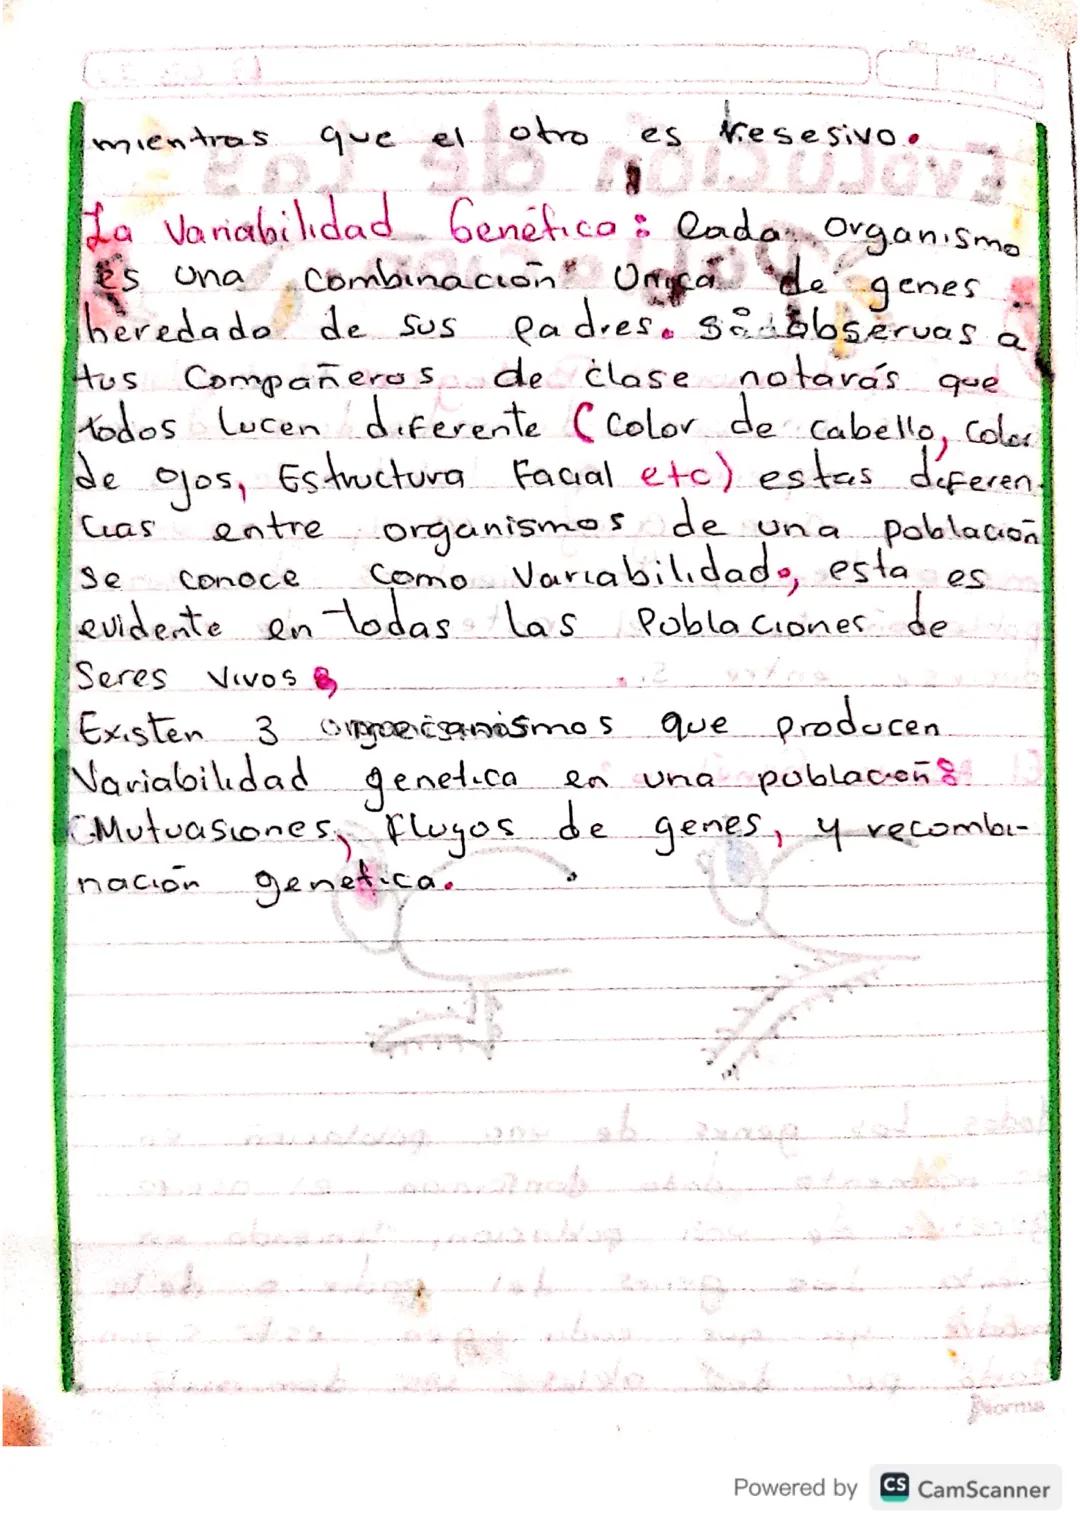 mientras que el otro es resesivo.
La Variabilidad Genética: Cada Organismo
es una Combinación Unica de genes
heredado de sus Padres. Si observas a
tus Compañeros de clase notarás que
todos lucen diferente (Color de cabello, color
de ojos, Estructura Facial etc) estas diferen-
cias entre organismos de una población
se conoce como Variabilidad, esta es
evidente en todas las Poblaciones de
Seres Vivos
Existen 3 que producen
Variabilidad genetica en una poblacion:
Mutuasiones, flugos de genes, y recombi-
nación genetica.
Norma
Powered by CS CamScanner